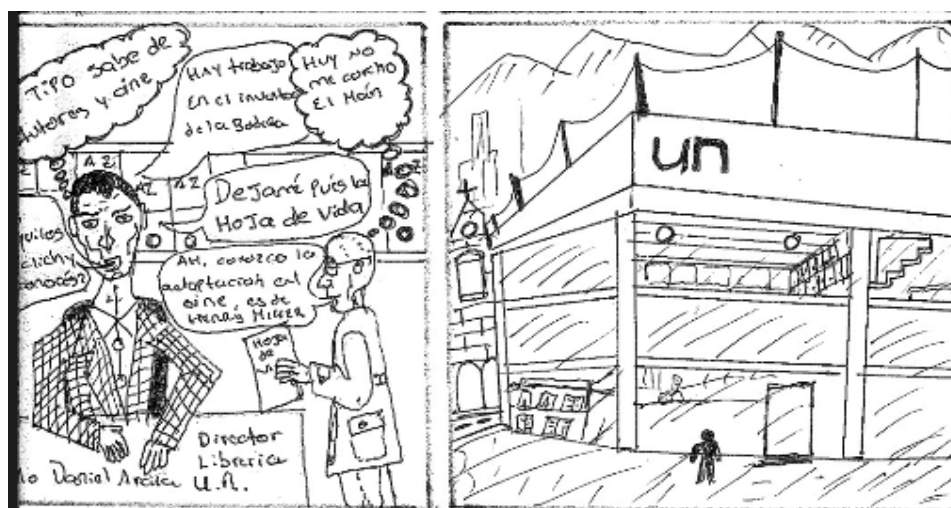 TIPO SABE DE
Autores y cine
HAY trabajo
En el inventa
de la Bodega
HUY NO
ME CORCHO
EL MAN
AZ
AZ
AZ
DEJAME PUES LA
HOJA DE VIDA
clichy
conoces?
AH, conozco la
adaptacion en el
cine, es de
HENRY MILLER
HOJA
DE
Director
Libreria
U.N.
Daniel
un